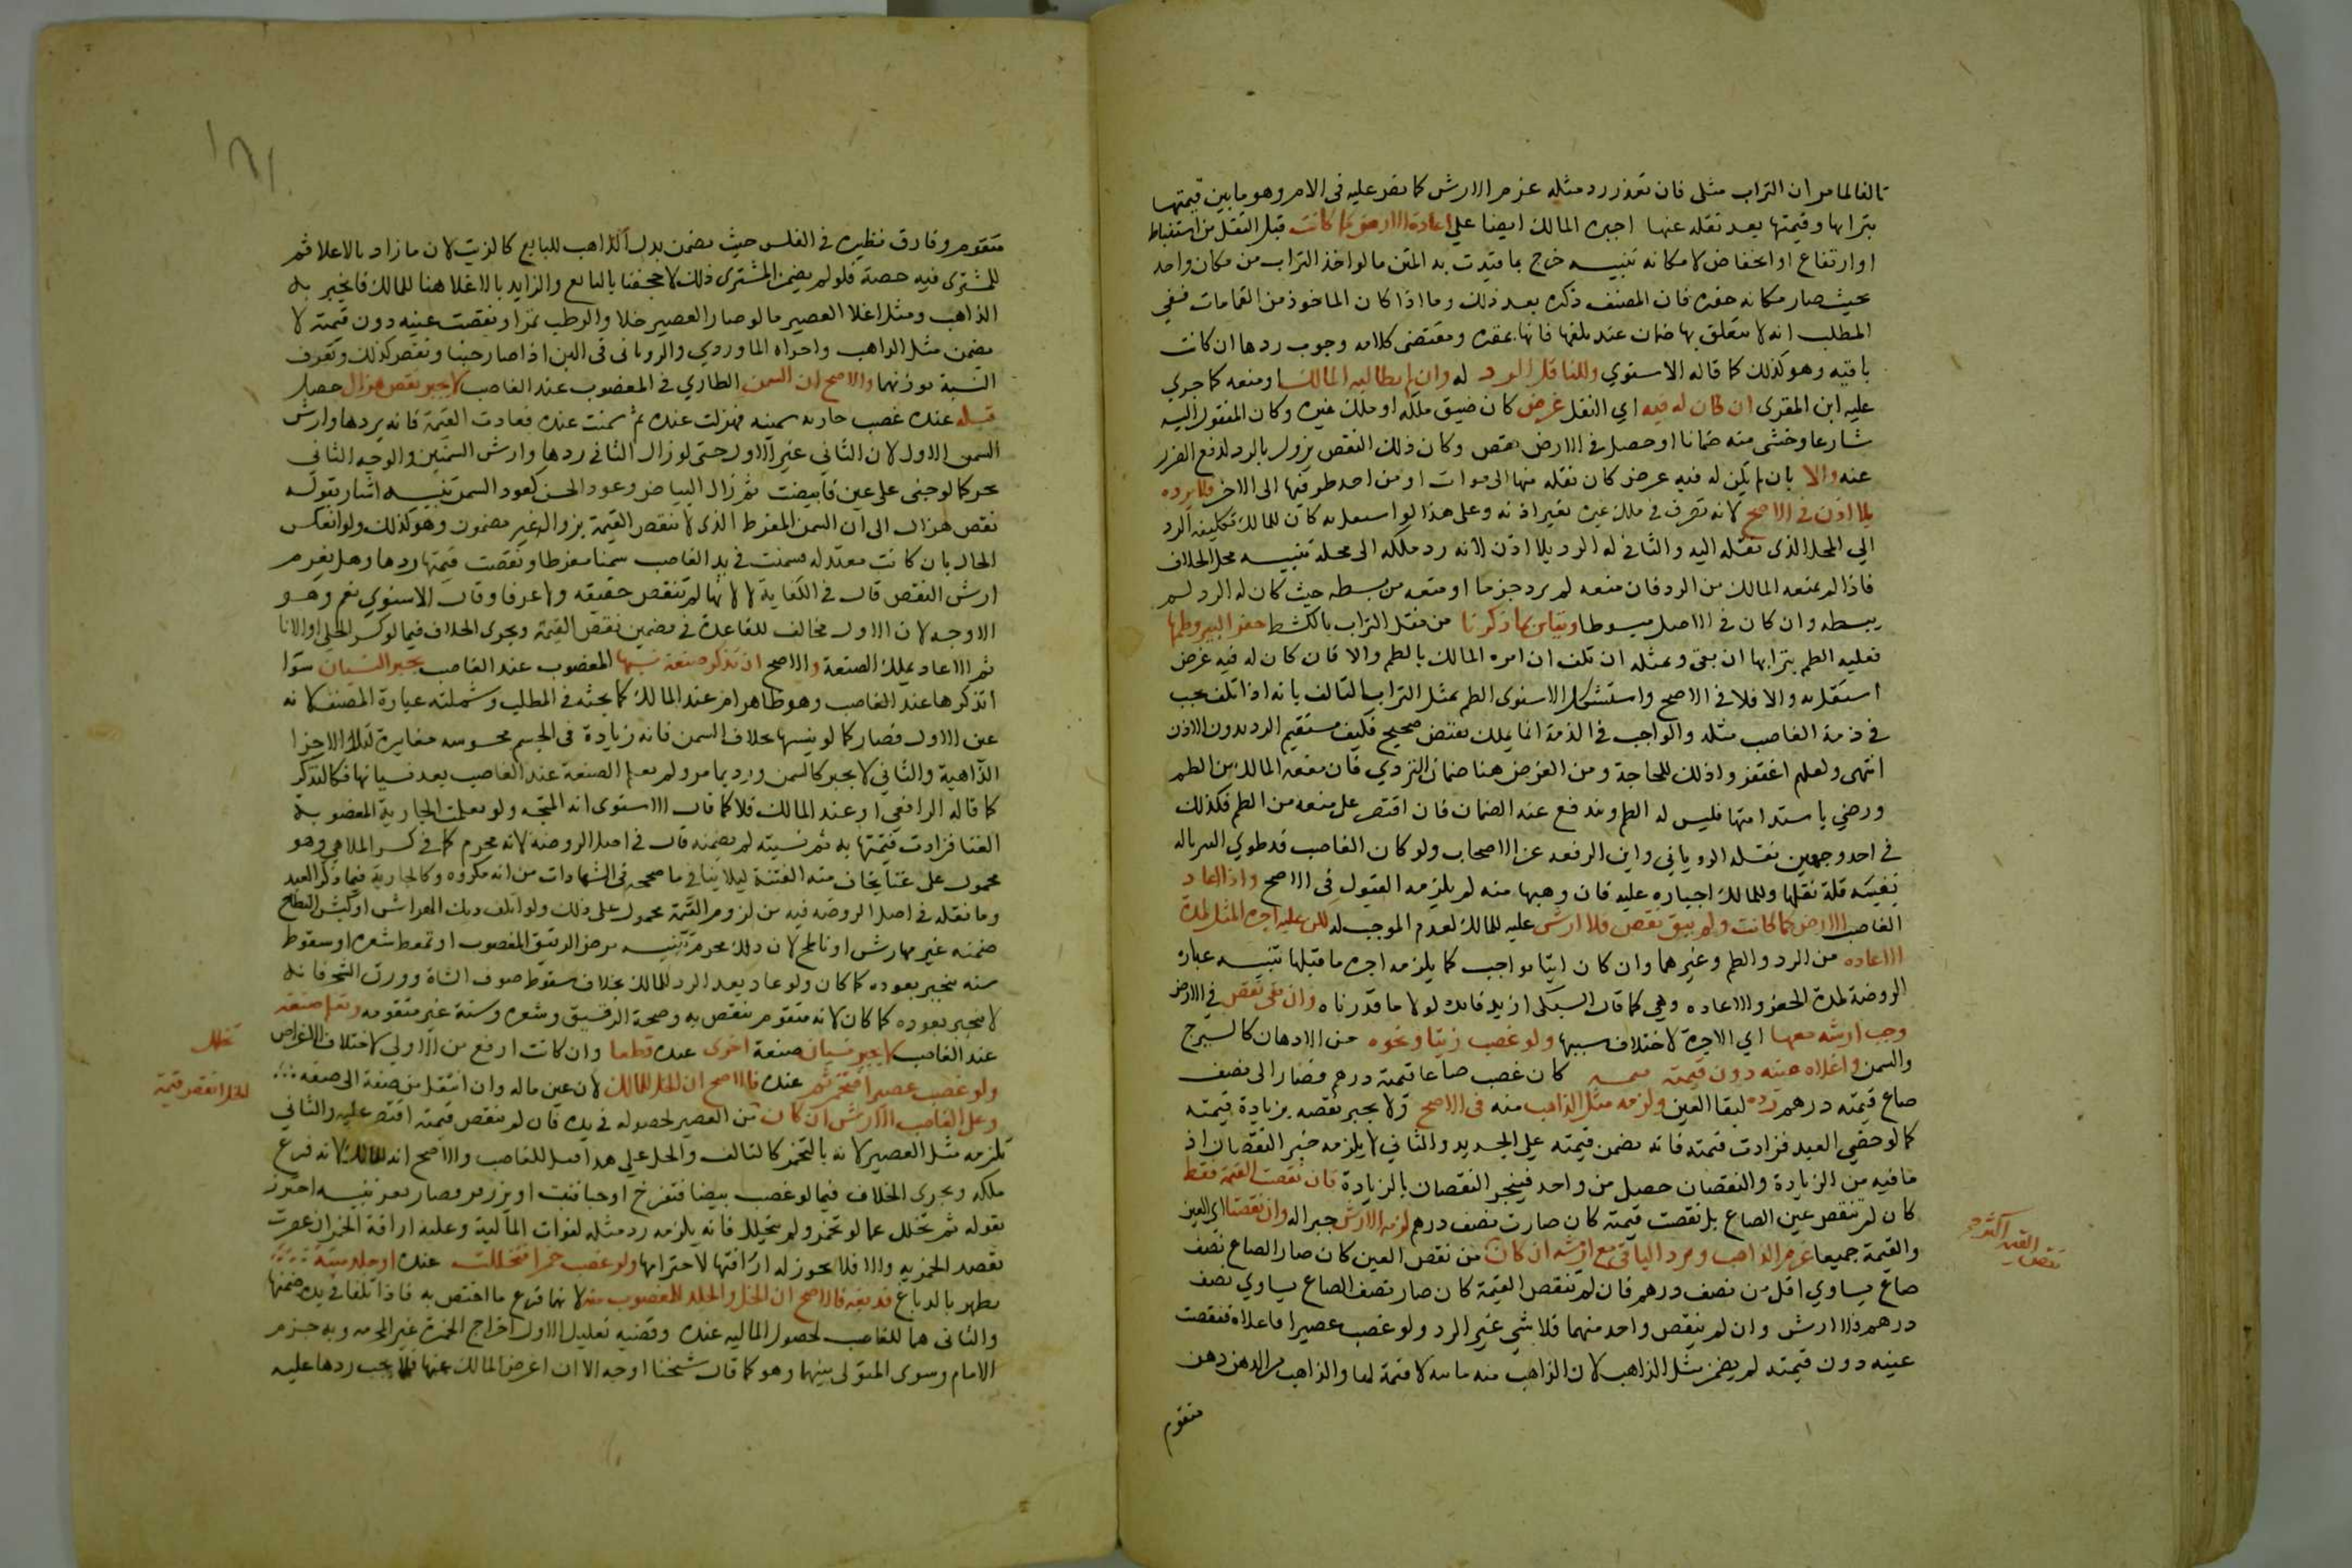 تالفا لما مر ان التراب مثلى فان تعذر رد مثله غرم الارش كما نص عليه فى الام وهو ما بين قيمتها
بترابها وقيمتها بعد نقله عنها اجبره المالك ايضا على اعادة الارض كما كانت قبل النقل من انبساط
او ارتفاع او انخفاض لامكانه تنبيه خرج بما قيدت به المتن ما لو اخذ التراب من مكان واحد
بحيث صار مكانه حفره فان المصنف ذكره بعد ذلك وما اذا كان الماخوذ من القمامات ففي
المطلب انه لا يتعلق بها ضمان عند تلفها فانها محقره ومقتضى كلامه وجوب ردها ان كانت
باقيه وهو كذلك كما قاله الاسنوي وللناقل الرد له وان لم يطالبه المالك او منعه كما جرى
عليه ابن المقرى ان كان له فيه اي النقل غرض كان ضيق ملكه او ملك غيره وكان المنقول اليه
شارعا وخشى منه ضمانا او حصل في الارض نقص وكان ذلك النقص يزول بالرد لدفع الضرر
عنه والا بان لم يكن له فيه غرض كان نقله منها الى موات او من احد طرفيها الى الاخر فلا يرده
بلا اذن فى الاصح لانه تصرف في ملك غيره بغير اذنه وعلى هذا لو استعمله كان للمالك تكليفه الرد
الي المحل الذى نقله اليه والثاني له الرد بلا اذن لانه رد ملكه الى محله تنبيه محل الخلاف
فاذا لم يمنعه المالك من الرد فان منعه لم يرد جزما او منعه من بسطه حيث كان له الرد لم
يبسطه وان كان في الاصل مبسوطا ويقاس بما ذكرنا من نقل التراب بالكشط حفر البير وطمها
فعليه الطم بترابها ان بقى وبمثله ان تلف ان امره المالك بالطم والا فان كان له فيه غرض
استقل به والا فلا فى الاصح واستشكل الاسنوى الطم بمثل التراب التالف بانه اذا تلف يجب
في ذمة الغاصب مثله والواجب فى الذمة انما يملك بقبض صحيح فكيف يستقيم الرد بدون الاذن
انتهى ولعلهم اغتفروا ذلك للحاجة ومن الغرض هنا ضمان التردي فان منعه المالك من الطم
ورضي باستدامتها فليس له الطم ويندفع عنه الضمان فان اقتصر على منعه من الطم فكذلك
في احد وجهين نقله الروياني وابن الرفعه عن الاصحاب ولو كان الغاصب قد طوي البير بالة
نفسه فله نقلها وللمالك اجباره عليه فان وهبها منه لم يلزمه القبول في الاصح واذا اعاد
الغاصب الارض كما كانت ولم يبق نقص فلا ارش عليه للمالك لعدم الموجب له لكن عليه اجرة المثل لمدة
الاعاده من الرد والطم وغيرهما وان كان اتيا بواجب كما يلزمه اجرة ما قبلها تنبيه عباره
الروضة لمدة الحفر والاعاده وهي كما قال السبكى ازيد فايده لولا ما قدرناه وان بقى نقص في الارض
وجب ارشه معها اي الاجرة لاختلاف سببها ولو غصب زيتا ونحوه من الادهان كالسيرج
والسمن واغلاه فنقصت عينه دون قيمته كان غصب صاعا قيمته درهم فصار الى نصف
صاع قيمته درهم رده لبقا العين ولزمه مثل الذاهب منه فى الاصح ولا يجبر نقصه بزيادة قيمته
كما لو خصي العبد فزادت قيمته فانه يضمن قيمته على الجديد والثاني لا يلزمه جبر النقصان اذ
ما فيه من الزيادة والنقصان حصل من واحد فينجبر النقصان بالزيادة فان نقصت القيمة فقط
كان لم تنقص عين الصاع بل نقصت قيمته كان صارت نصف درهم لزمه الارش جبرا له وان نقصتا اي العين
والقيمة جميعا غرم الذاهب ورد الباقي مع ارشه ان كان من نقص العين كان صار الصاع نصف
صاع يساوي اقل من نصف درهم فان لم تنقص القيمة كان صار نصف الصاع يساوي نصف
درهم فلا ارش وان لم ينقص واحد منهما فلا شي غير الرد ولو غصب عصيرا فاغلاه فنقصت
عينه دون قيمته لم يضمن مثل الذاهب لان الذاهب منه مائيه لا قيمة لها والذاهب من الدهن دهن
متقوم
نقص القيمة اكثر
متقوم وفارق نظيره في الفلس حيث يضمن بدل الذاهب للبايع كالزيت لان ما زاد بالاغلا ثم
للمشترى فيه حصة فلو لم يضمن المشترى ذلك لاجحفنا بالبايع والزايد بالاغلا هنا للمالك فانجبر به
الذاهب ومثل اغلا العصير ما لو صار العصير خلا والرطب تمرا ونقصت عينه دون قيمته لا
يضمن مثل الذاهب واجراه الماوردي والروياني فى اللبن اذا صار جبنا ونقص كذلك وتعرف
النسبة بوزنهما والاصح ان السمن الطاري في المغصوب عند الغاصب لا يجبر نقص هزال حصل
قبله عنده غصب جارية سمينه فهزلت عنده ثم سمنت عنده فعادت القيمة فانه يردها وارش
السمن الاول لان الثاني غير الاول حتى لو زال الثاني ردها وارش السمنين والوجه الثاني
يجبر كما لو جنى على عين فابيضت ثم زال البياض وعود الحسن كعود السمن تنبيه اشار بقوله
نقص هزال الى ان السمن المفرط الذى لا تنقص القيمة بزواله غير مضمون وهو كذلك ولو انعكس
الحال بان كانت معتدله فسمنت في يد الغاصب سمنا مفرطا ونقصت قيمتها ردها وهل يغرم
ارش النقص قال في الكفاية لا لانها لم تنقص حقيقه ولا عرفا وقال الاسنوي نعم وهو
الاوجه لان الاول مخالف للقاعدة في تضمين نقص القيمة ويجرى الخلاف فيما لو كسر الحلي او الانا
ثم الاعاد بملك الصنعة والاصح ان تذكر صنعة نسيها المغصوب عند الغاصب يجبر النسيان سوا
اتذكرها عند الغاصب وهو ظاهر ام عند المالك كما بحثه في المطلب وشملته عبارة المصنف لانه
عين الاول فصار كما لو نسيها بخلاف السمن فانه زيادة فى الجسم محسوسه مغايرة لتلك الاجزا
الذاهبة والثاني لا يجبر كالسمن ورد بما مر ولو تعلم الصنعة عند الغاصب بعد نسيانها فكالتذكر
كما قاله الرافعي او عند المالك فلا كما قال الاسنوى انه المتجه ولو تعلمت الجارية المغصوبة
الغنا فزادت قيمتها به ثم نسيته لم يضمنه قال في اصل الروضة لانه محرم كما في كسر الملاهي وهو
محمول على غنا يخاف منه الفتنة ليلا ينافي ما صححه فى الشهادات من انه مكروه وكالجارية فيما ذكر العبد
وما نقله في اصل الروضه فيه من لزوم القيمة محمول على ذلك ولو اتلف ديك الهراش او كبش النطاح
ضمنه غير مهارش او ناطح لان ذلك محرم تنبيه مرض الرقيق المغصوب او تمعط شعره او سقوط
سنه ينجبر بعوده كما كان ولو عاد بعد الرد للمالك بخلاف سقوط صوف الشاة وورق الشجر فانه
لا ينجبر بعوده كما كان لانه متقوم ينقص به وصحة الرقيق وشعره وسنه غير متقومه وتعلم صنعة
عند الغاصب لا يجبر نسيان صنعة اخرى عنده قطعا وان كانت ارفع من الاولي لاختلاف الاغراض
ولو غصب عصيرا فتخمر ثم عنده فالاصح ان الخل للمالك لانه عين ماله وان انتقل من صفة الى صفه
وعلى الغاصب الارش ان كان من العصير لحصوله في يده فان لم تنقص قيمته اقتصر عليه والثاني
يلزمه مثل العصير لانه بالتخمر كالتالف والخل على هذا قيل للغاصب والاصح انه للمالك لانه فرع
ملكه ويجرى الخلاف فيما لو غصب بيضا فتفرخ او حبا فنبت او بزر فصار قز تنبيه احترز
بقوله ثم تخلل عما لو تخمر ولم يتخلل فانه يلزمه رد مثله لفوات المالية وعليه اراقة الخمر ان عصرت
بقصد الخمرية والا فلا يجوز له اراقتها لاحترامها ولو غصب خمرا فتخللت عنده او جلد ميتة
يطهر بالدباغ فدبغه فالاصح ان الخل والجلد للمغصوب منه لانهما فرع ما اختص به فاذا تلفا في يده ضمنها
والثاني هما للغاصب لحصول الماليه عنده وقضيه تعليل الاول اخراج الخمرة غير المحترمه وبه جزم
الامام وسوى المتولى بينهما وهو كما قال شيخنا اوجه الا ان اعرض المالك عنها فلا يجب ردها عليه
تخلل
الخل انقص قيمة